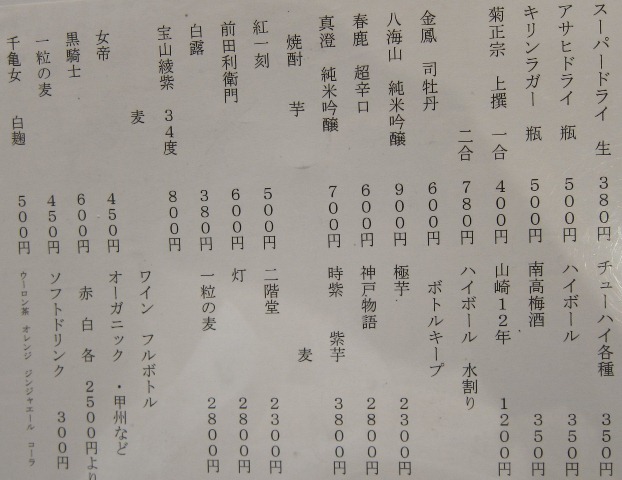 スーパードライ 生 380円
アサヒドライ 瓶 500円
キリンラガー 瓶 500円
菊正宗 上撰 一合 400円
二合 780円
金鳳 司牡丹 600円
八海山 純米吟醸 900円
春鹿 超辛口 600円
真澄 純米吟醸 700円
焼酎 芋
紅一刻 500円
前田利衛門 600円
白露 380円
宝山綾紫 34度 800円
麦
女帝 450円
黒騎士 600円
一粒の麦 450円
千亀女 白麹 500円
チューハイ各種 350円
ハイボール 350円
南高梅酒 350円
山崎12年 1200円
ハイボール 水割り
ボトルキープ
極芋 2300円
神戸物語 2800円
時紫 紫芋 3800円
麦
二階堂 2300円
灯 2800円
一粒の麦 2800円
ワイン フルボトル
オーガニック ・甲州など
赤 白 各 2500円より
ソフトドリンク 300円
ウーロン茶 オレンジ ジンジャエール コーラ